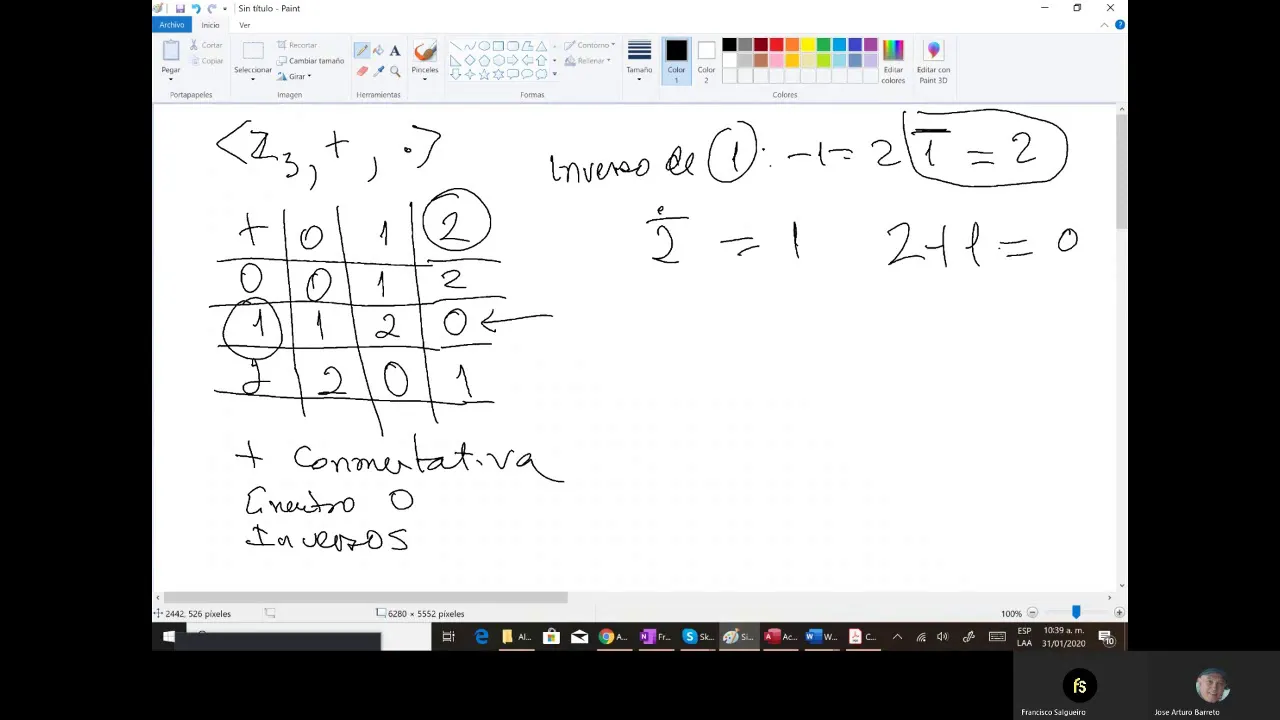 Sin título - Paint
Archivo Inicio Ver
Pegar
Cortar
Copiar
Portapapeles
Seleccionar
Recortar
Cambiar tamaño
Girar
Imagen
Herramientas
Pinceles
Contorno
Rellenar
Formas
Tamaño
Color 1
Color 2
Editar colores
Editar con Paint 3D
Colores
<Z3, +, .>
Inverso de 1: -1 = 2 1 = 2
2 = 1 2+1 = 0
+ 0 1 2
0 0 1 2
1 1 2 0
2 2 0 1
+ Conmutativa
0
Inversos
2442, 526 píxeles 6280 × 5552 píxeles 100%
Al... A... Fr... Sk... Si... Ac... W... C...
ESP LAA
10:39 a. m.
31/01/2020
10
fs
Francisco Salgueiro
Jose Arturo Barreto